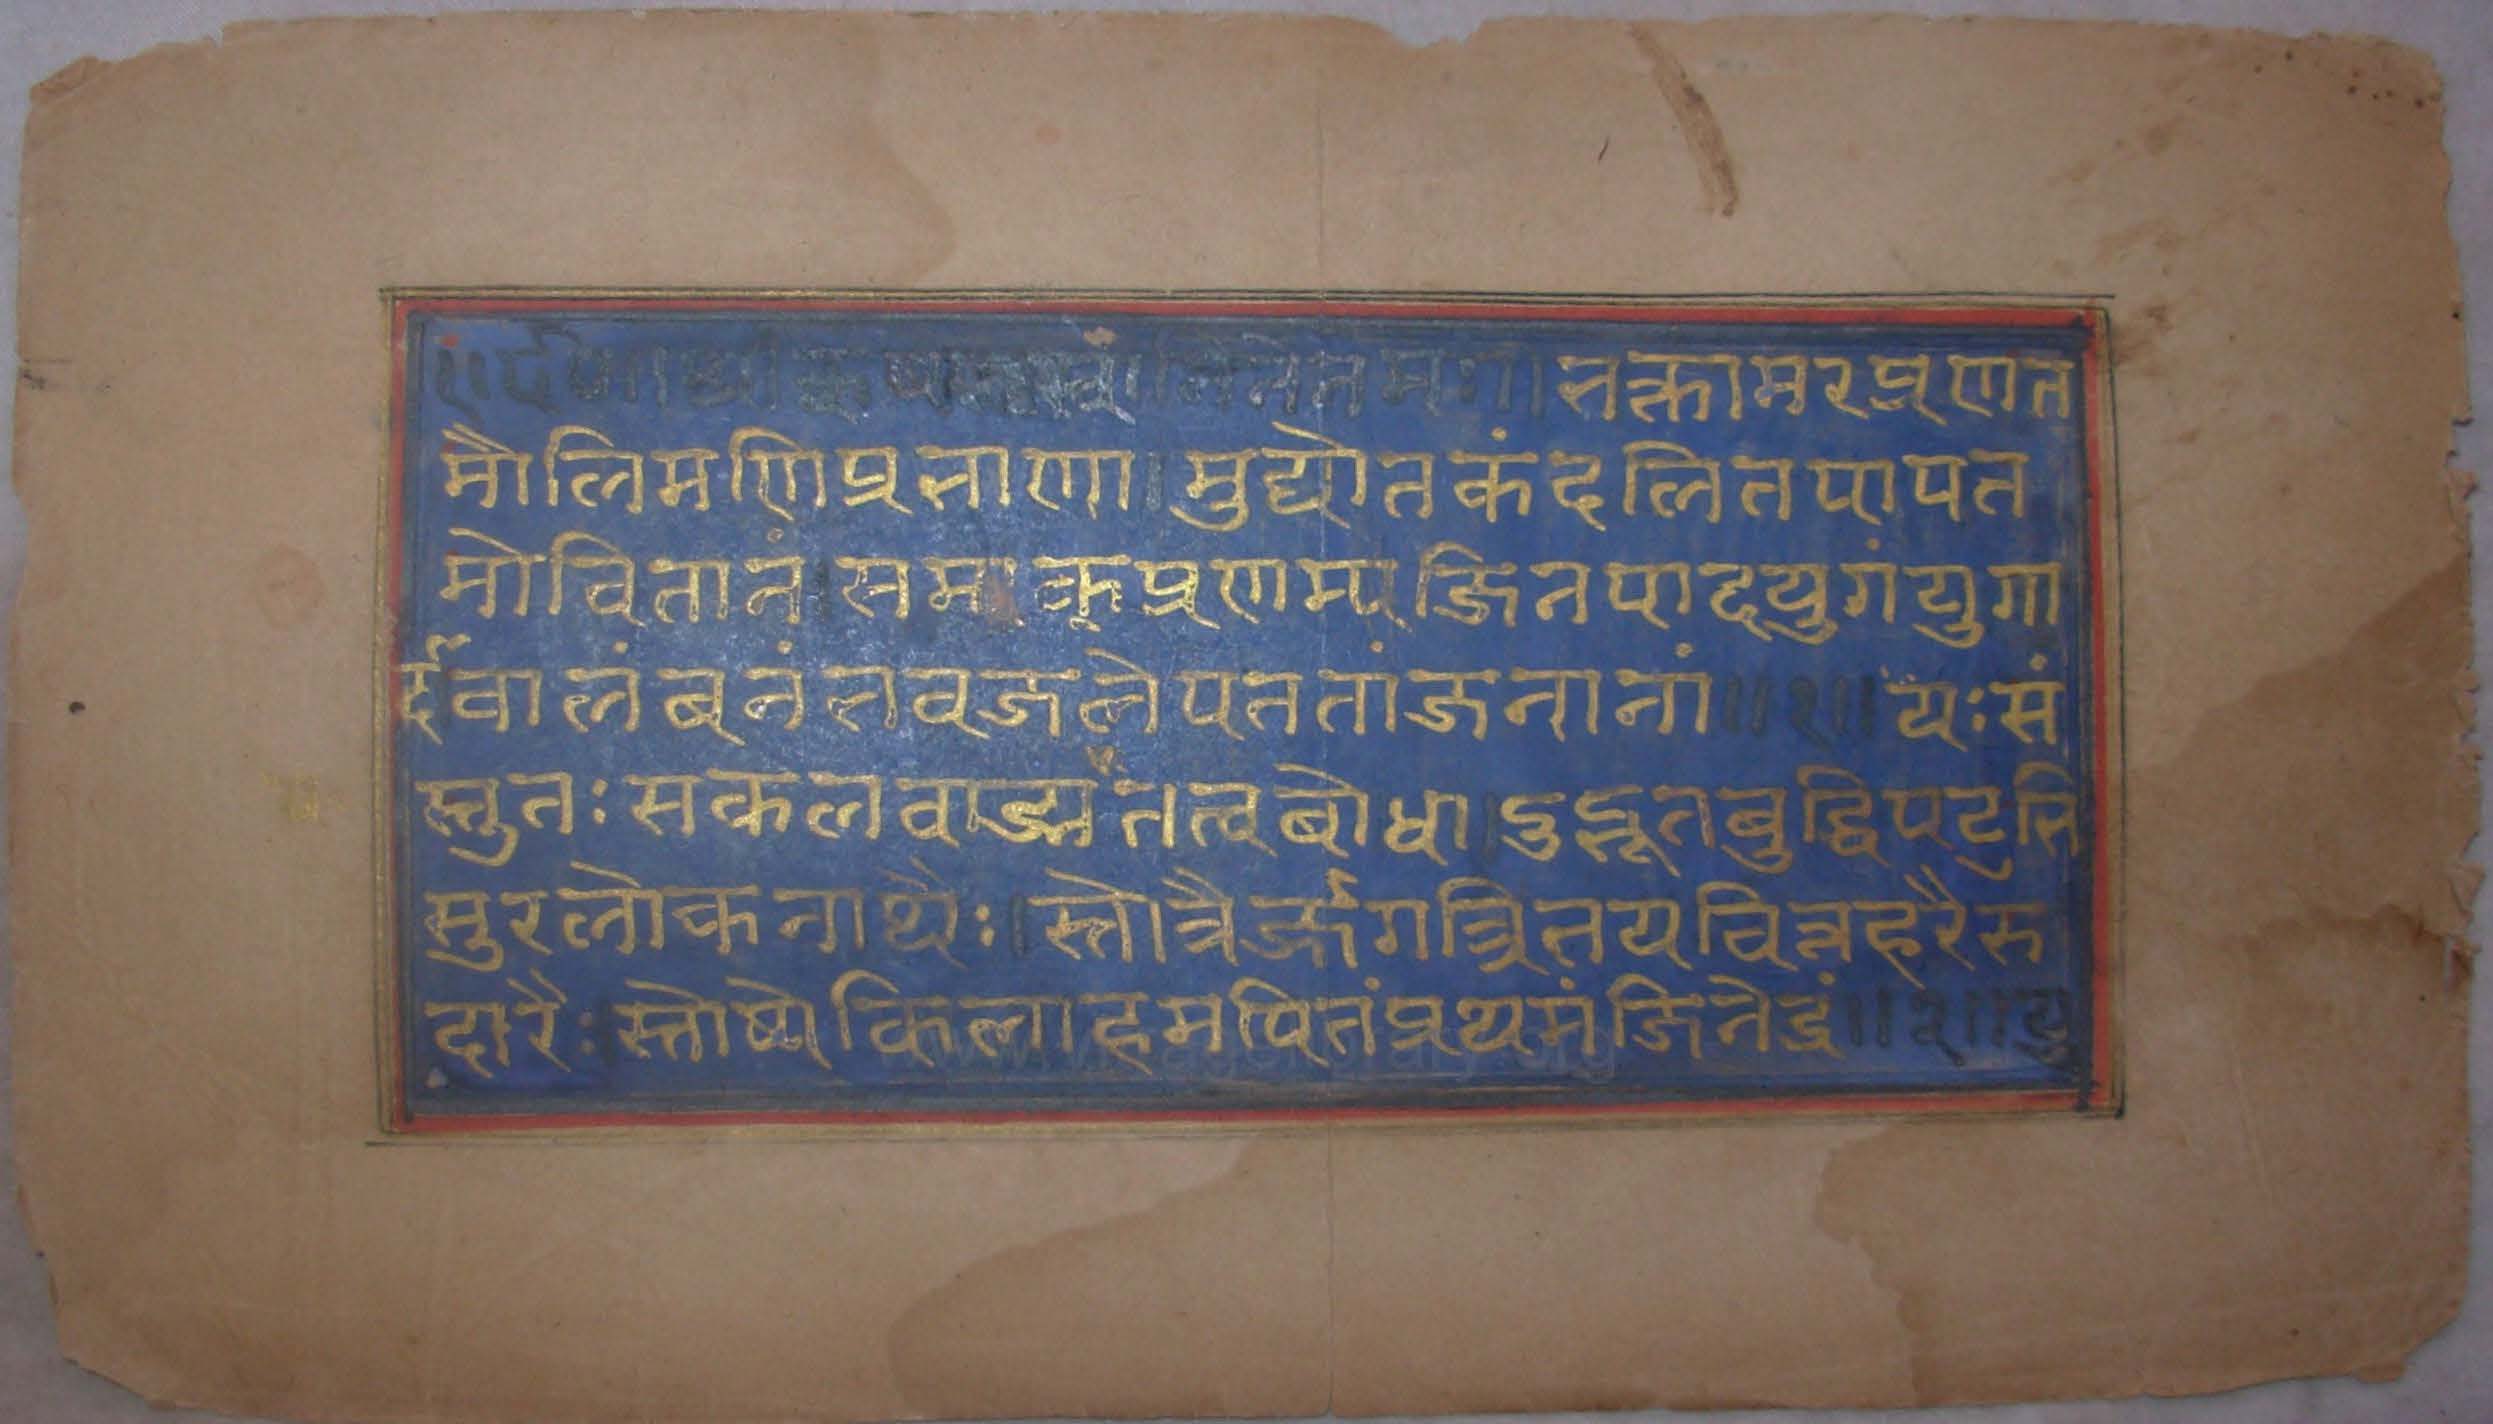 भक्तामरप्रणत
मौलिमणिप्रभाणा। मुद्योतकंदलितपापत
मोवितानं। सम्यक्प्रणम्य जिनपादयुगंयुगा
र्दवालंबनंभवजलेपततांजनानां॥१॥ यःसं
स्तुतः सकलवाङ्मयतत्वबोधा।ऽद्भूतबुद्धिपटुभि
सुरलोकनाथैः। स्तोत्रैर्ज्जगत्त्रितयचित्तहरैरु
दारैः। स्तोष्ये किलाहमपितंप्रथमंजिनेंद्रं॥२॥ बु